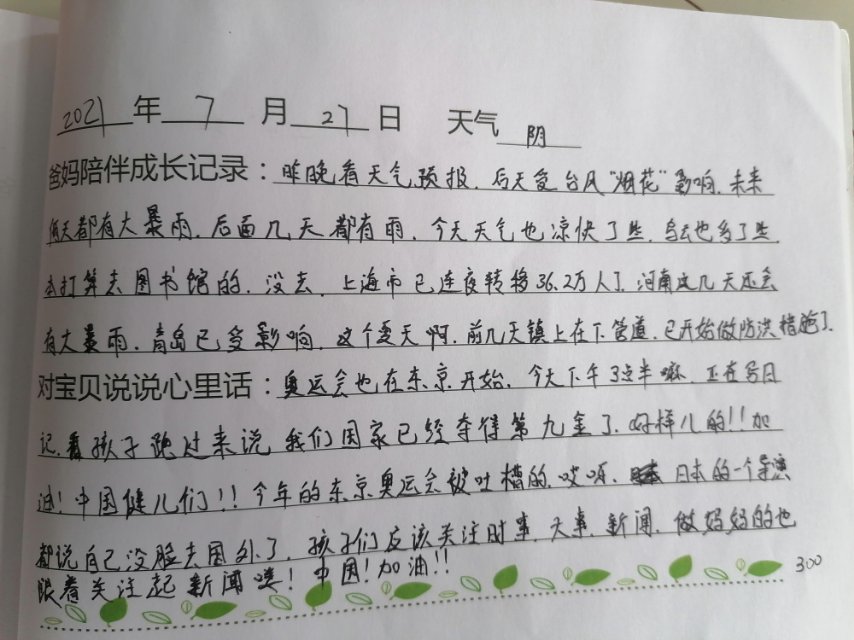 2021年 7 月 27 日 天气 阴
爸妈陪伴成长记录：昨晚看天气预报，后天受台风“烟花”影响，未来
俩天都有大暴雨，后面几天都有雨，今天天气也凉快了些，乌云也多了些，
本打算去图书馆的，没去，上海市已连夜转移36.2万人了，河南这几天还会
有大暴雨，青岛已受影响，这个夏天啊，前几天镇上在下管道，已开始做防洪措施了.
对宝贝说说心里话：奥运会也在东京开始，今天下午3点半嘛，正在写日
记，孩子跑过来说我们国家已经夺得第九金了，好样儿的!!加
油！中国健儿们!!今年的东京奥运会被吐槽的，哎呀，日本的一个导演
都说自己没脸去国外了，孩子们应该关注时事，天事，新闻，做妈妈的也
跟着关注起新闻喽！中国！加油!!
300